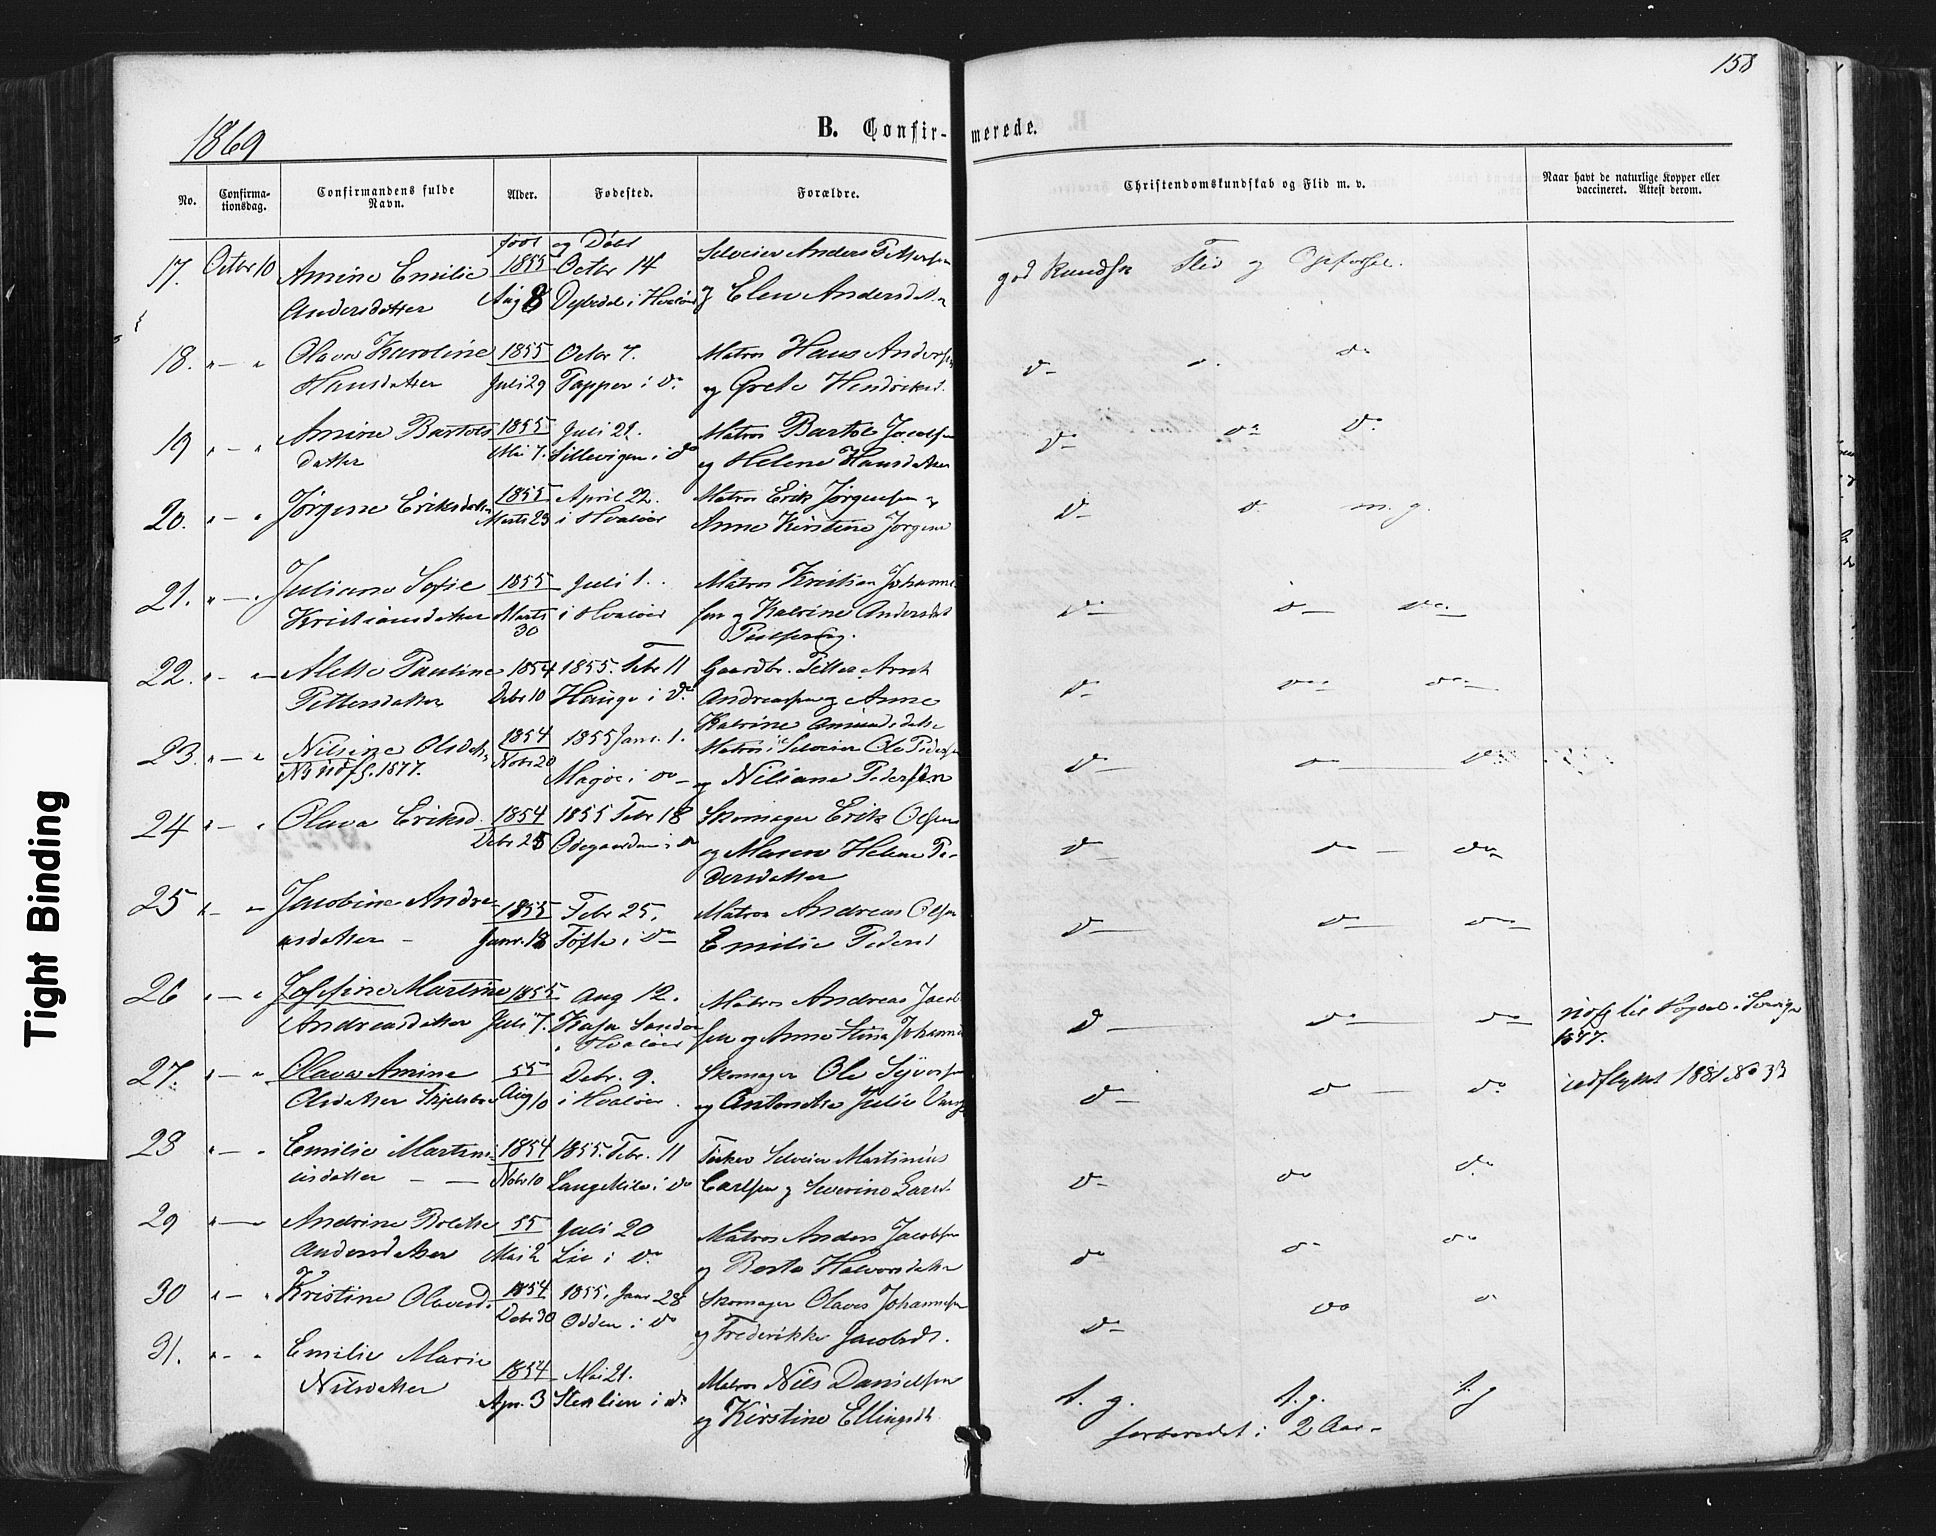 158
1869
B. Confir-
merede.
No.
Confirma-
tionsdag.
Confirmandens fulde
Navn.
Alder.
Fødested.
Forældre.
Christendomskundskab og Flid m. v.
Naar havt de naturlige Kopper eller
vaccineret. Attest derom.
født og Døbt
17. Octbr 10 Amine Emilie 1855 Octbr 14 Selveier Anders
Andersdatter Aug 8 Dybedal i Hvaløer og Elen Andersdatr
god Kundsk Flid og Opførsel.
18. " — " Olava Karoline 1855 Octbr 7. Matros Hans Andersen
Hansdatter Juli 29 Papper i do og Grete Hendriksd.
do do do
19 " — " Amine Bartols 1855 Juli 21. Matros Bartol Jacobsen
datter Mai 7. Lillevigen i do og Helene Hansdatter
do do do
20. " — " Jørgine Eriksdatter 1855 April 22. Matros Erik Jørgensen og
Marts 23 i Hvaløer Anne Kirstine Jørgens
do do m. g.
21. " — " Juliane Sofie 1855 Juli 1. Matros Kristian Johanne-
Kristiansdatter Marts 30 i Hvaløer sen og Katrine Andersdat
do do do
22. " — " Alette Pauline 1854 1855. Febr 11 Gaardbr. Petter Arnt
Pettersdatter Debr 10 Hauge i do Andreasen og Anne
Katrine Amundsdatter
do do do
23. " — " Nilsine Olsdatr 1854 1855 Janr. 1. Matros i Selveier Ole Pedersen
No 1 udfl. 1877. Nobr 20 Magøe i do og Nilsane Pedersen
do do do
24 " — " Olava Eriksd. 1854 1855 Febr 18 Skomager Erik Olsen
Debr 25 Ødegaarden i do og Maren Helene Pe-
dersdatter
do do do
25 " — " Jacobine Andre- 1855 Febr 25. Matros Andreas Olsen
asdatter — Janr. 18 Tofte i do Emilie Pedersd
do do do
26 " — " Josefine Martine 1855 Aug 12. Matros Andreas Jacob
Andreasdatter Juli 7. Kasa Sandø sen og Anne Stina Johanne
i Hvaløer
do do do
1877.
27. " — " Olava Amine 55 Debr. 9. Skomager Ole Syversen
Olsdatter Aug 10 i Hvaløer. og Antonette Julie
do do do udflyttet 1881 No 33
28 " — " Emilie Martini- 1854 1855. Febr. 11 Fisker Selveier Martinius
usdatter — — Nobr 10 Langekile i do Carlsen og Severine Larsd.
do do do
29 " — " Andrine Bolette 55 Juli 20 Matros Anders Jacobsen
Andersdatter Mai 2 Lie i do og Berte Halvorsdatter
do do do
30 " — " Kristine Olavesd. 1854 1855. Janr 28 Skomager Olaves Johannesen
Debr 30 Odden i do og Frederikke Jacobsdt.
do do do
31. " — " Emilie Marie 1854 Mai 21. Matros Nils Danielsen
Nilsdatter Apr. 3 Stenlien i do og Kirstine Ellingsdt.
t. g. t. g. t. g
forberedet i 2 Aar.
Tight Binding